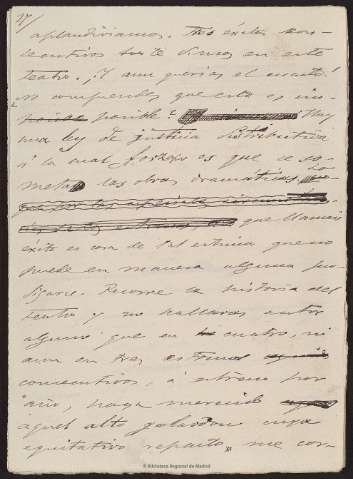 27/
aplaudiríamos. Tres éxitos con-
secutivos has tenido en este
teatro. ¿Y aun querías el cuarto?
No comprendes que esto es im-
posible? Hay
una ley de justicia distributiva
á la cual forzoso es que se so-
metan las obras dramáticas
que llamais
éxito es cosa de tal estrecha que no
puede en manera alguna pro-
digarse. Recorre la historia del
teatro y no hallarás autor
alguno que en cuatro, ni
aun en tres estrenos
consecutivos, á estreno por
año, haya merecido
aquel alto galardon cuyo
equitativo reparto, me cor-
© Biblioteca Regional de Madrid